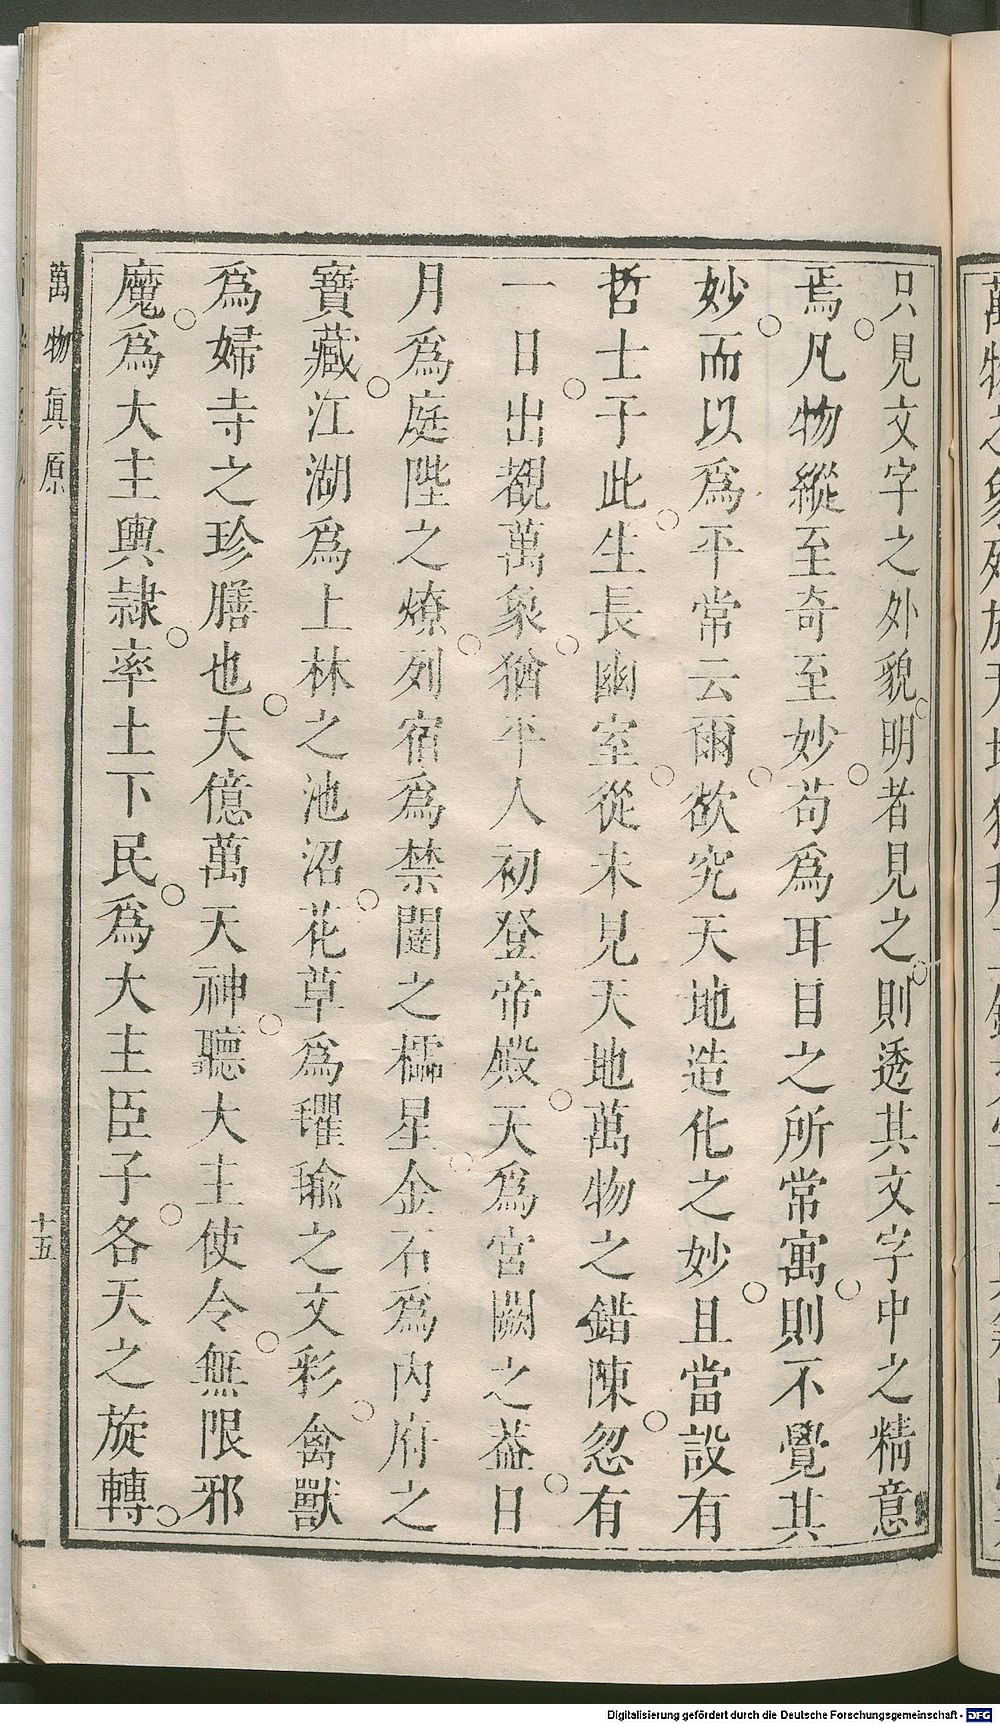 只見文字之外貌明者見之則透其文字中之精意
焉凡物縱至奇至妙苟爲耳目之所常寓則不覺其
妙而以爲平常云爾欲究天地造化之妙且當設有
哲士于此生長幽室從未見天地萬物之錯陳忽有
一日出覩萬象猶平人初登帝殿天爲宮闕之葢日
月爲庭陛之燎列宿爲禁闥之櫺星金石爲內府之
寶藏江湖爲上林之池沼花草爲瓘瑜之文彩禽獸
爲婦寺之珍膳也夫億萬天神聽大主使令無限邪
魔爲大主輿隸率土下民爲大主臣子各天之旋轉
萬物眞原
十五
Digitalisierung gefördert durch die Deutsche Forschungsgemeinschaft - DFG